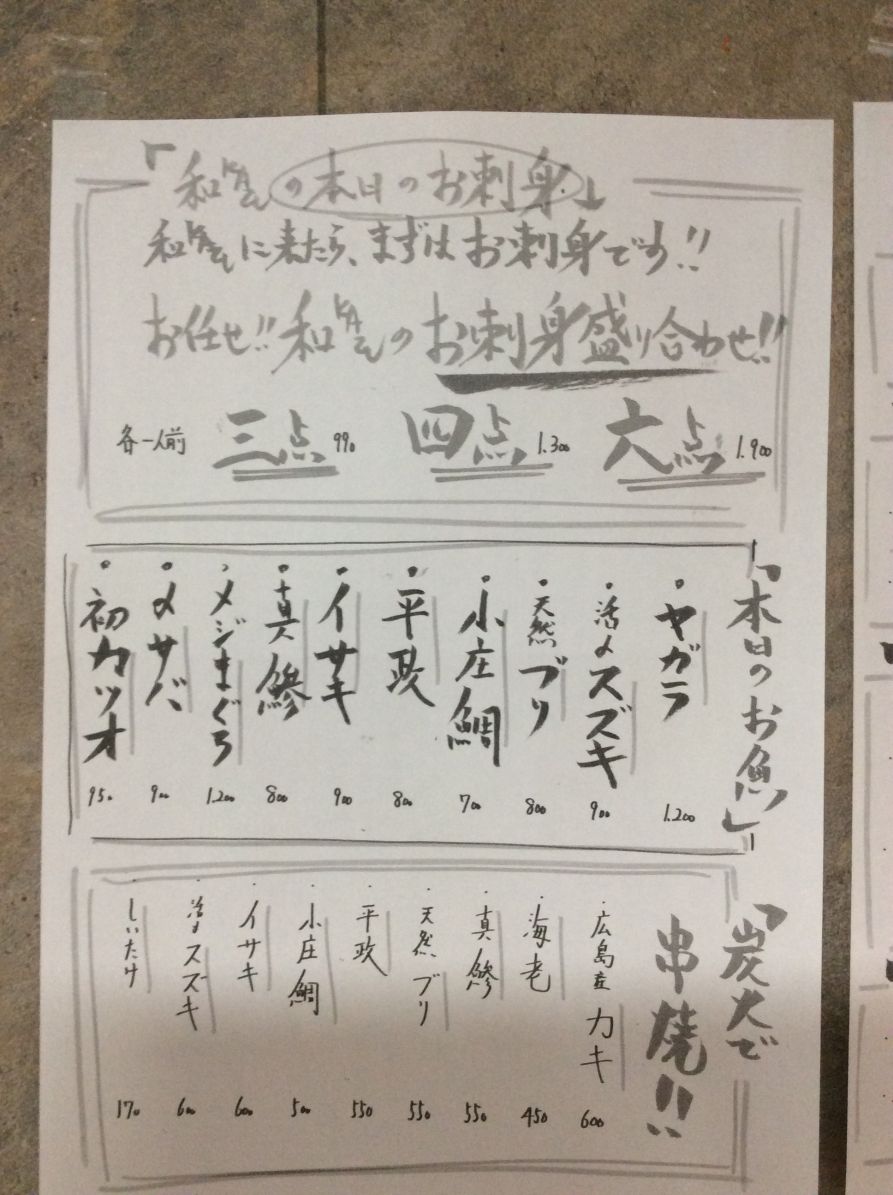 「和がんの本日のお刺身」
に来たら、まずはお刺身です!!
お任せ!!
のお刺身盛り合わせ!!
各一人前 三点 990 四点 1.300 六点 1.900
「本日のお魚」
・ヤガラ 1.200
・活〆スズキ 900
・天然ブリ 800
・小庄鯛 700
・平政 800
・イサキ 900
・真鯵 800
・メジまぐろ 1.200
・〆サバ 900
・初カツオ 950
「炭火で
串焼!!
・広島産カキ 600
・海老 450
・真鯵 550
・天然ブリ 550
・平政 550
・小庄鯛 500
・イサキ 600
・活〆スズキ 600
・しいたけ 170